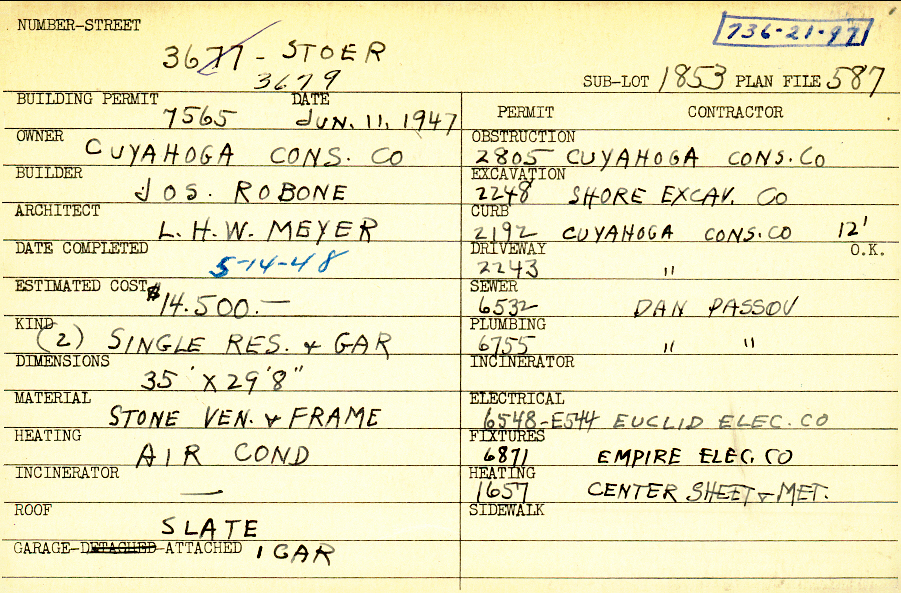 NUMBER-STREET
736-21-97
3677 - STOER
3679
SUB-LOT 1853 PLAN FILE 587
BUILDING PERMIT DATE
7565 JUN. 11, 1947
OWNER
CUYAHOGA CONS. CO
BUILDER
JOS. ROBONE
ARCHITECT
L. H. W. MEYER
DATE COMPLETED
5-14-48
ESTIMATED COST
$14.500.—
KIND
(2) SINGLE RES. & GAR
DIMENSIONS
35' X 29'8"
MATERIAL
STONE VEN. & FRAME
HEATING
AIR COND
INCINERATOR
—
ROOF
SLATE
GARAGE-DETACHED-ATTACHED 1 GAR
PERMIT CONTRACTOR
OBSTRUCTION
2805 CUYAHOGA CONS. CO
EXCAVATION
2248 SHORE EXCAV. CO
CURB
2192 CUYAHOGA CONS. CO 12'
DRIVEWAY O.K.
2243 "
SEWER
6532 DAN PASSOV
PLUMBING
6755 " "
INCINERATOR
ELECTRICAL
6548-E544 EUCLID ELEC. CO
FIXTURES
6871 EMPIRE ELEC. CO
HEATING
1657 CENTER SHEET & MET.
SIDEWALK